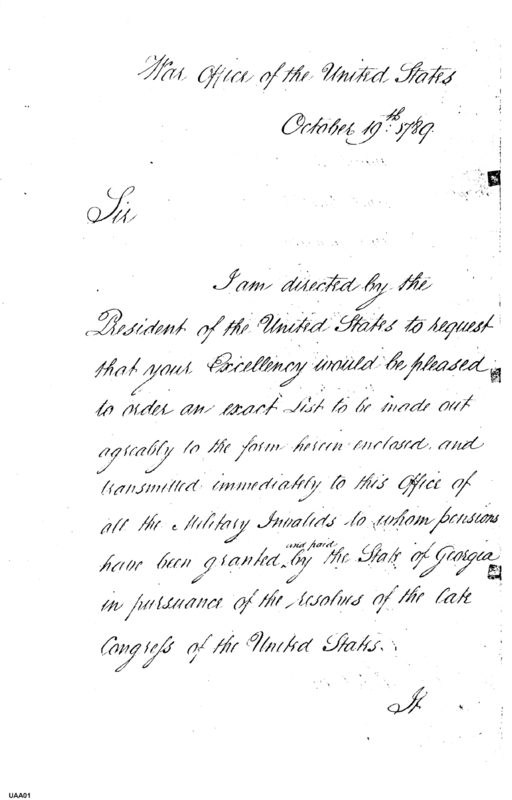 War Office of the United States
October 19th 1789.
Sir
I am directed by the
President of the United States to request
that your Excellency would be pleased
to order an exact List to be made out
agreably to the form herein enclosed, and
transmitted immediately to this Office of
all the Military Invalids to whom pensions
have been granted and paid by the State of Georgia
in pursuance of the resolves of the late
Congress of the United States.
It
UAA01